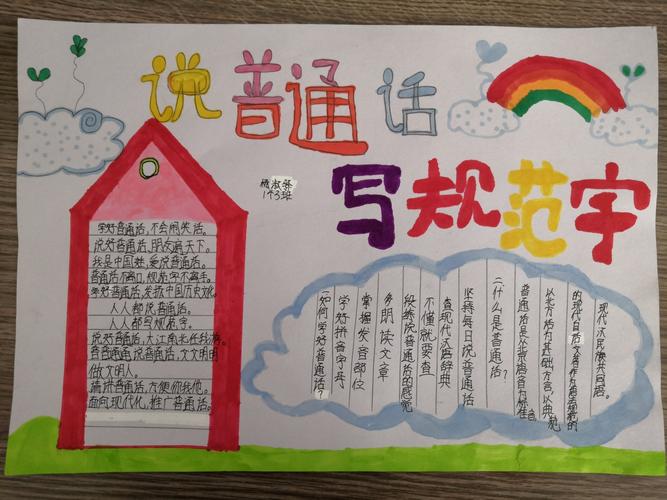 说普通话
写规范字
143班
学好普通话，不会闹笑话。
说好普通话，朋友遍天下。
我是中国娃，爱说普通话。
普通话不离口，规范字不离手。
学好普通话，发扬中国历史文化。
人人都说普通话。
人人都写规范字。
说好普通话，大江南北任我游。
普普通通说普通话，文文明明
做文明人。
请讲普通话，方便你我他。
面向现代化，推广普通话。
(如何学好普通话？
学好拼音字母
掌握发音部位
多朗读文章
锻练说普通话的感觉
不懂就要查
查现代汉语辞典
坚持每日说普通话
(二什么是普通话？
普通话是以北京语音为标准音
以北方话为基础方言，以典范
的现代白话文著作为语法规范的
现代汉民族共同语。